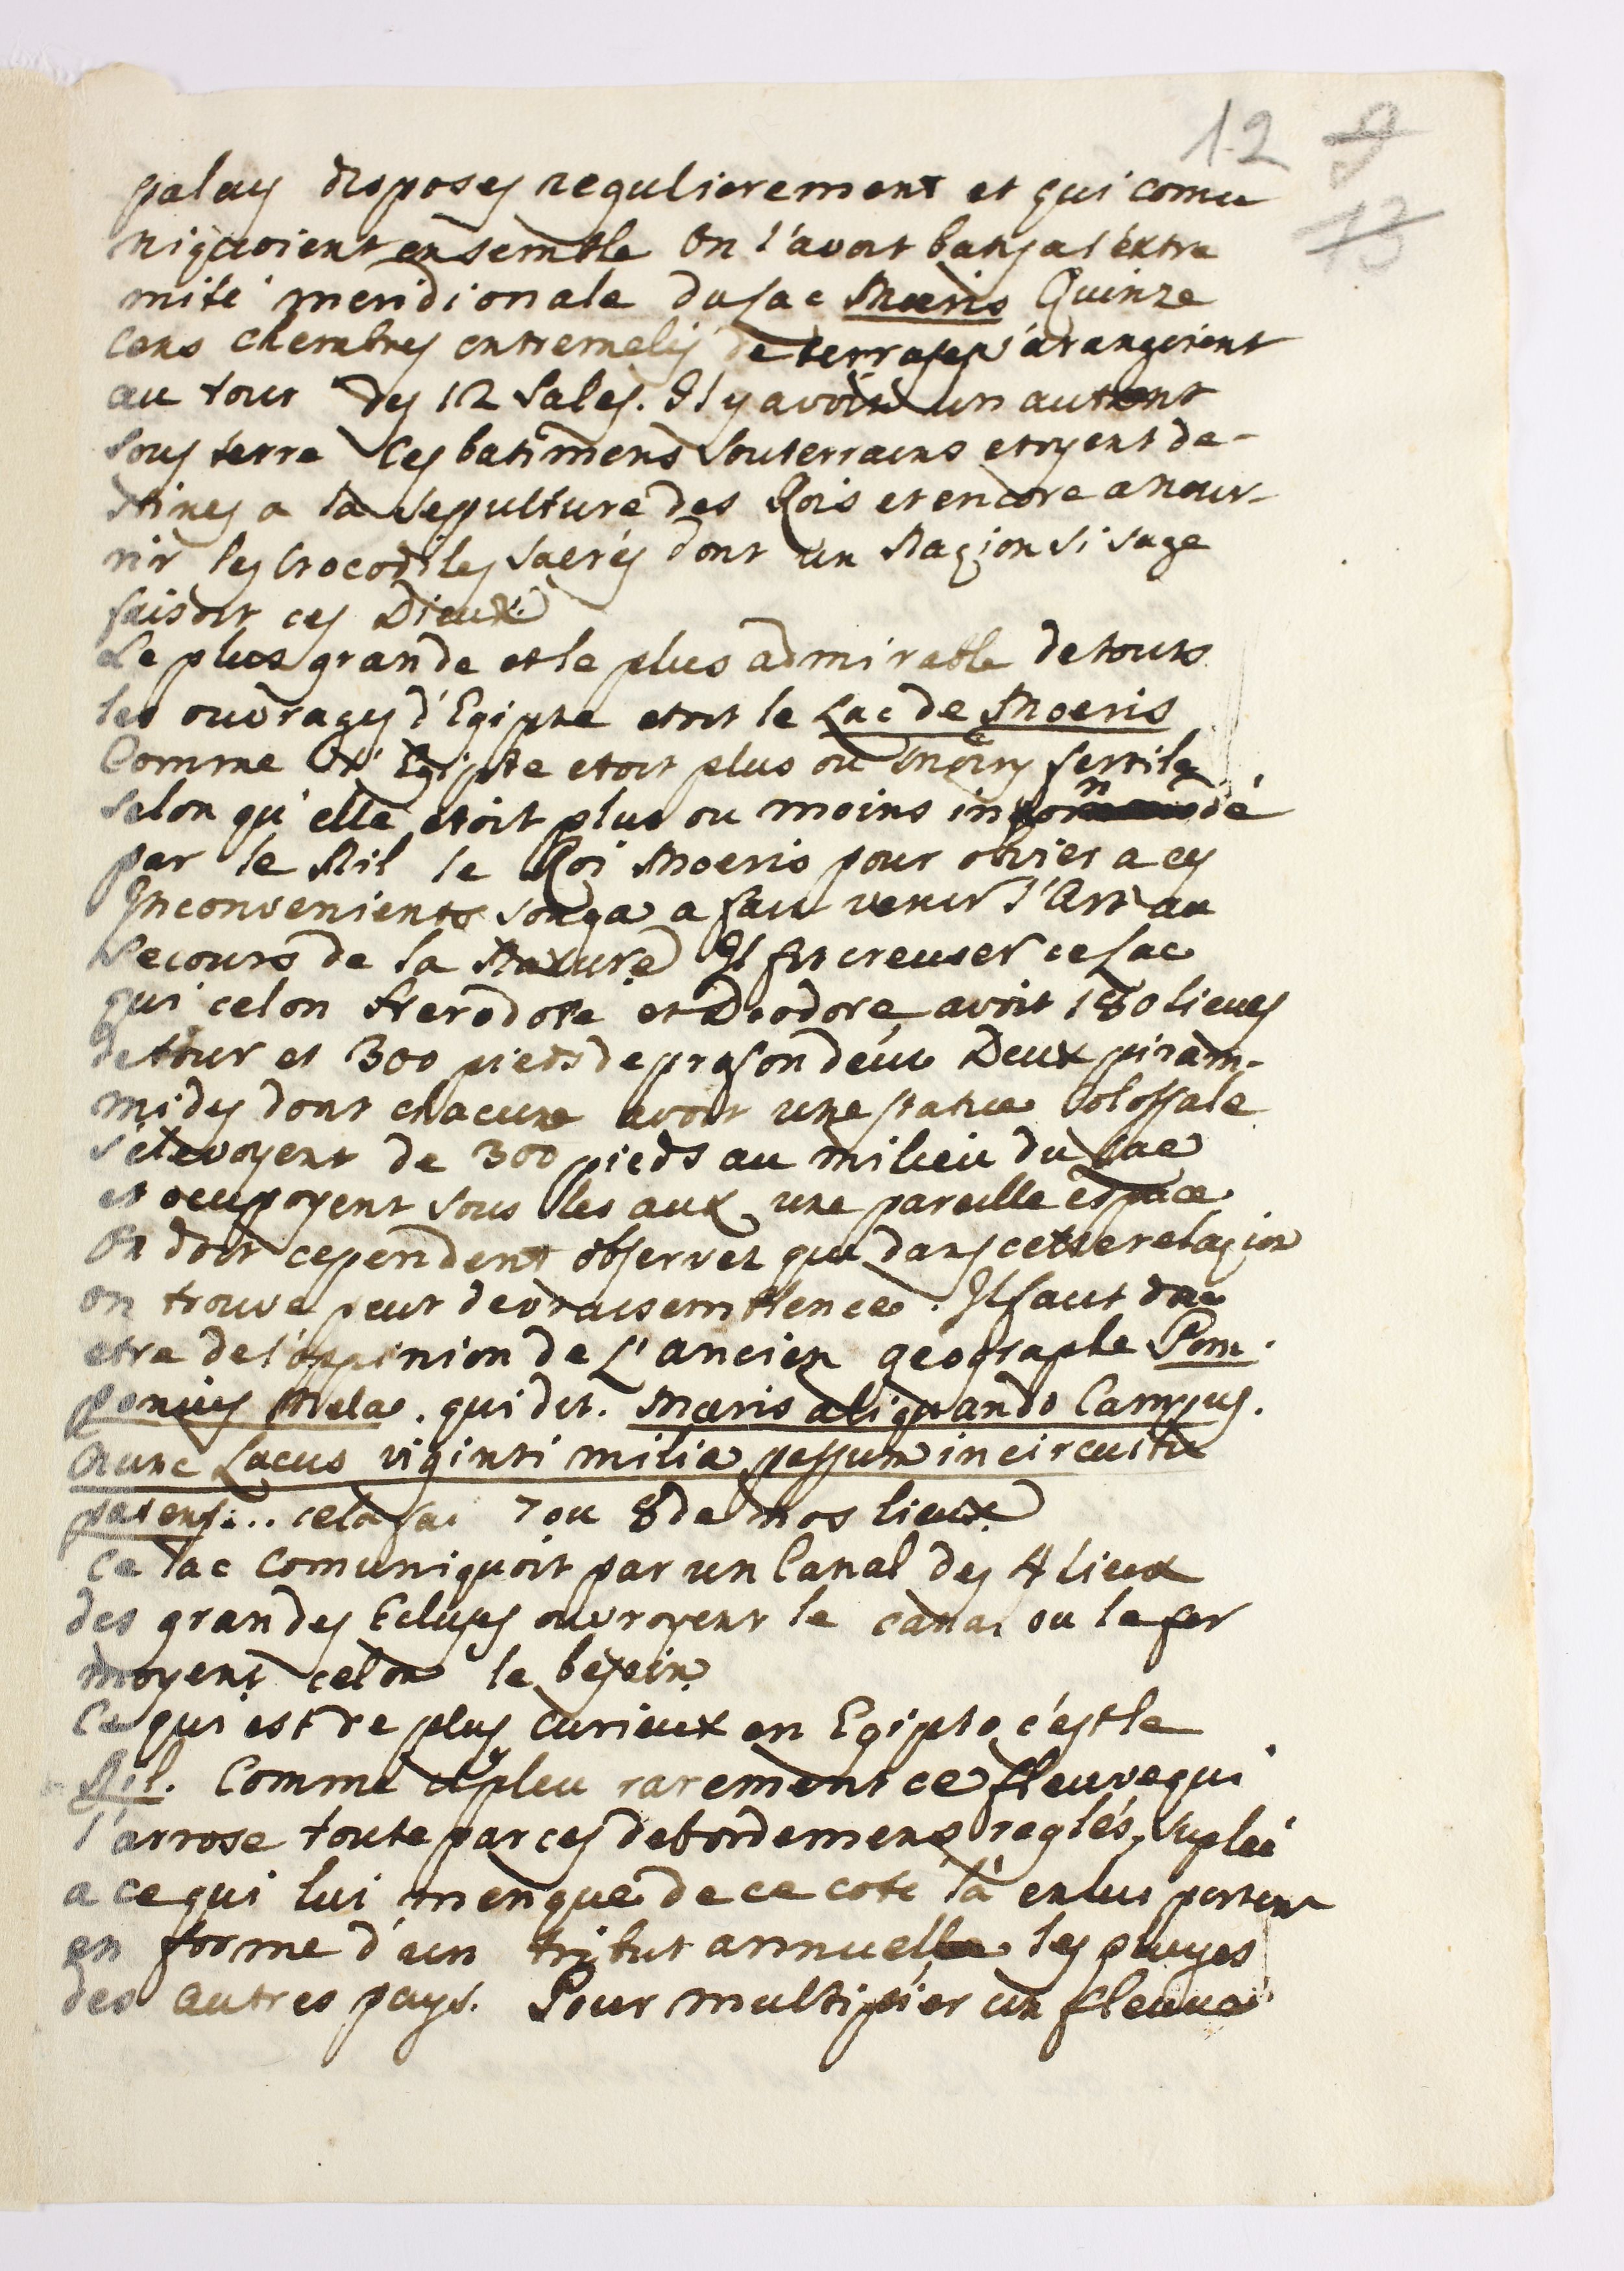 12 9
13
palais disposes regulierement et qui comu
niquoient ensemble On l'avoit bati a l'extre
mité meridionale du lac Moeris Quinze
cens chembres entremeles de terrases s'arangoient
au tour des 12 Sales. Il y avoit un autent
sous terre Ces batimens souterrains etoyent de-
stines a la sepulture des Rois et encore a nour-
rir les Crocodiles sacrés dont un Nazion si sage
faisoit ces Dieux
Le plus grande et le plus admirable de touts
les ouvrages d'Egipte etoit le Lac de Moeris
Comme l'Egipte etoit plus ou moins fertile
selon qu'elle etoit plus ou moins inondé
par le Nil le Roi Moeris pour obvier a ces
Inconvenients songa a faire venir l'Art au
secours de la Nature Il fit creuser ce Lac
qui celon Herodote et Diodore avoit 180 lieues
de tour et 300 pieds de profondeur Deux piram-
mides dont chacune avoit une statue Colossale
s'elevoyent de 300 pieds au milieu du Lac
et ocupoyent sous les aux une pareille espace
On doit cependent observer que dans cette relazion
on trouve peut de vraisemblence. Il faut donc
etre de l'oppinion de L'ancien geographe Pom.
ponius Mela. qui dit. Moeris aliquando Campus.
Nunc Lacus viginti milia passum in circuitu
patens... cela fai 7 ou 8 de nos lieux
Ce lac comuniquoit par un Canal des 4 lieux
des grandes Ecluses ouvroyent le canal ou le fer
moyent celon le besoin
Ce qui est de plus curieux en Egipte c'est le
Nil. Comme il pleu rarement ce fleuve qui
l'arrose toute par ces debordemens reglés, suplée
a ce qui lui menque de ce coté là en lui portent
en forme d'un tribut annuelle les pluyes
des autres pays. Pour multiplier un fleuve